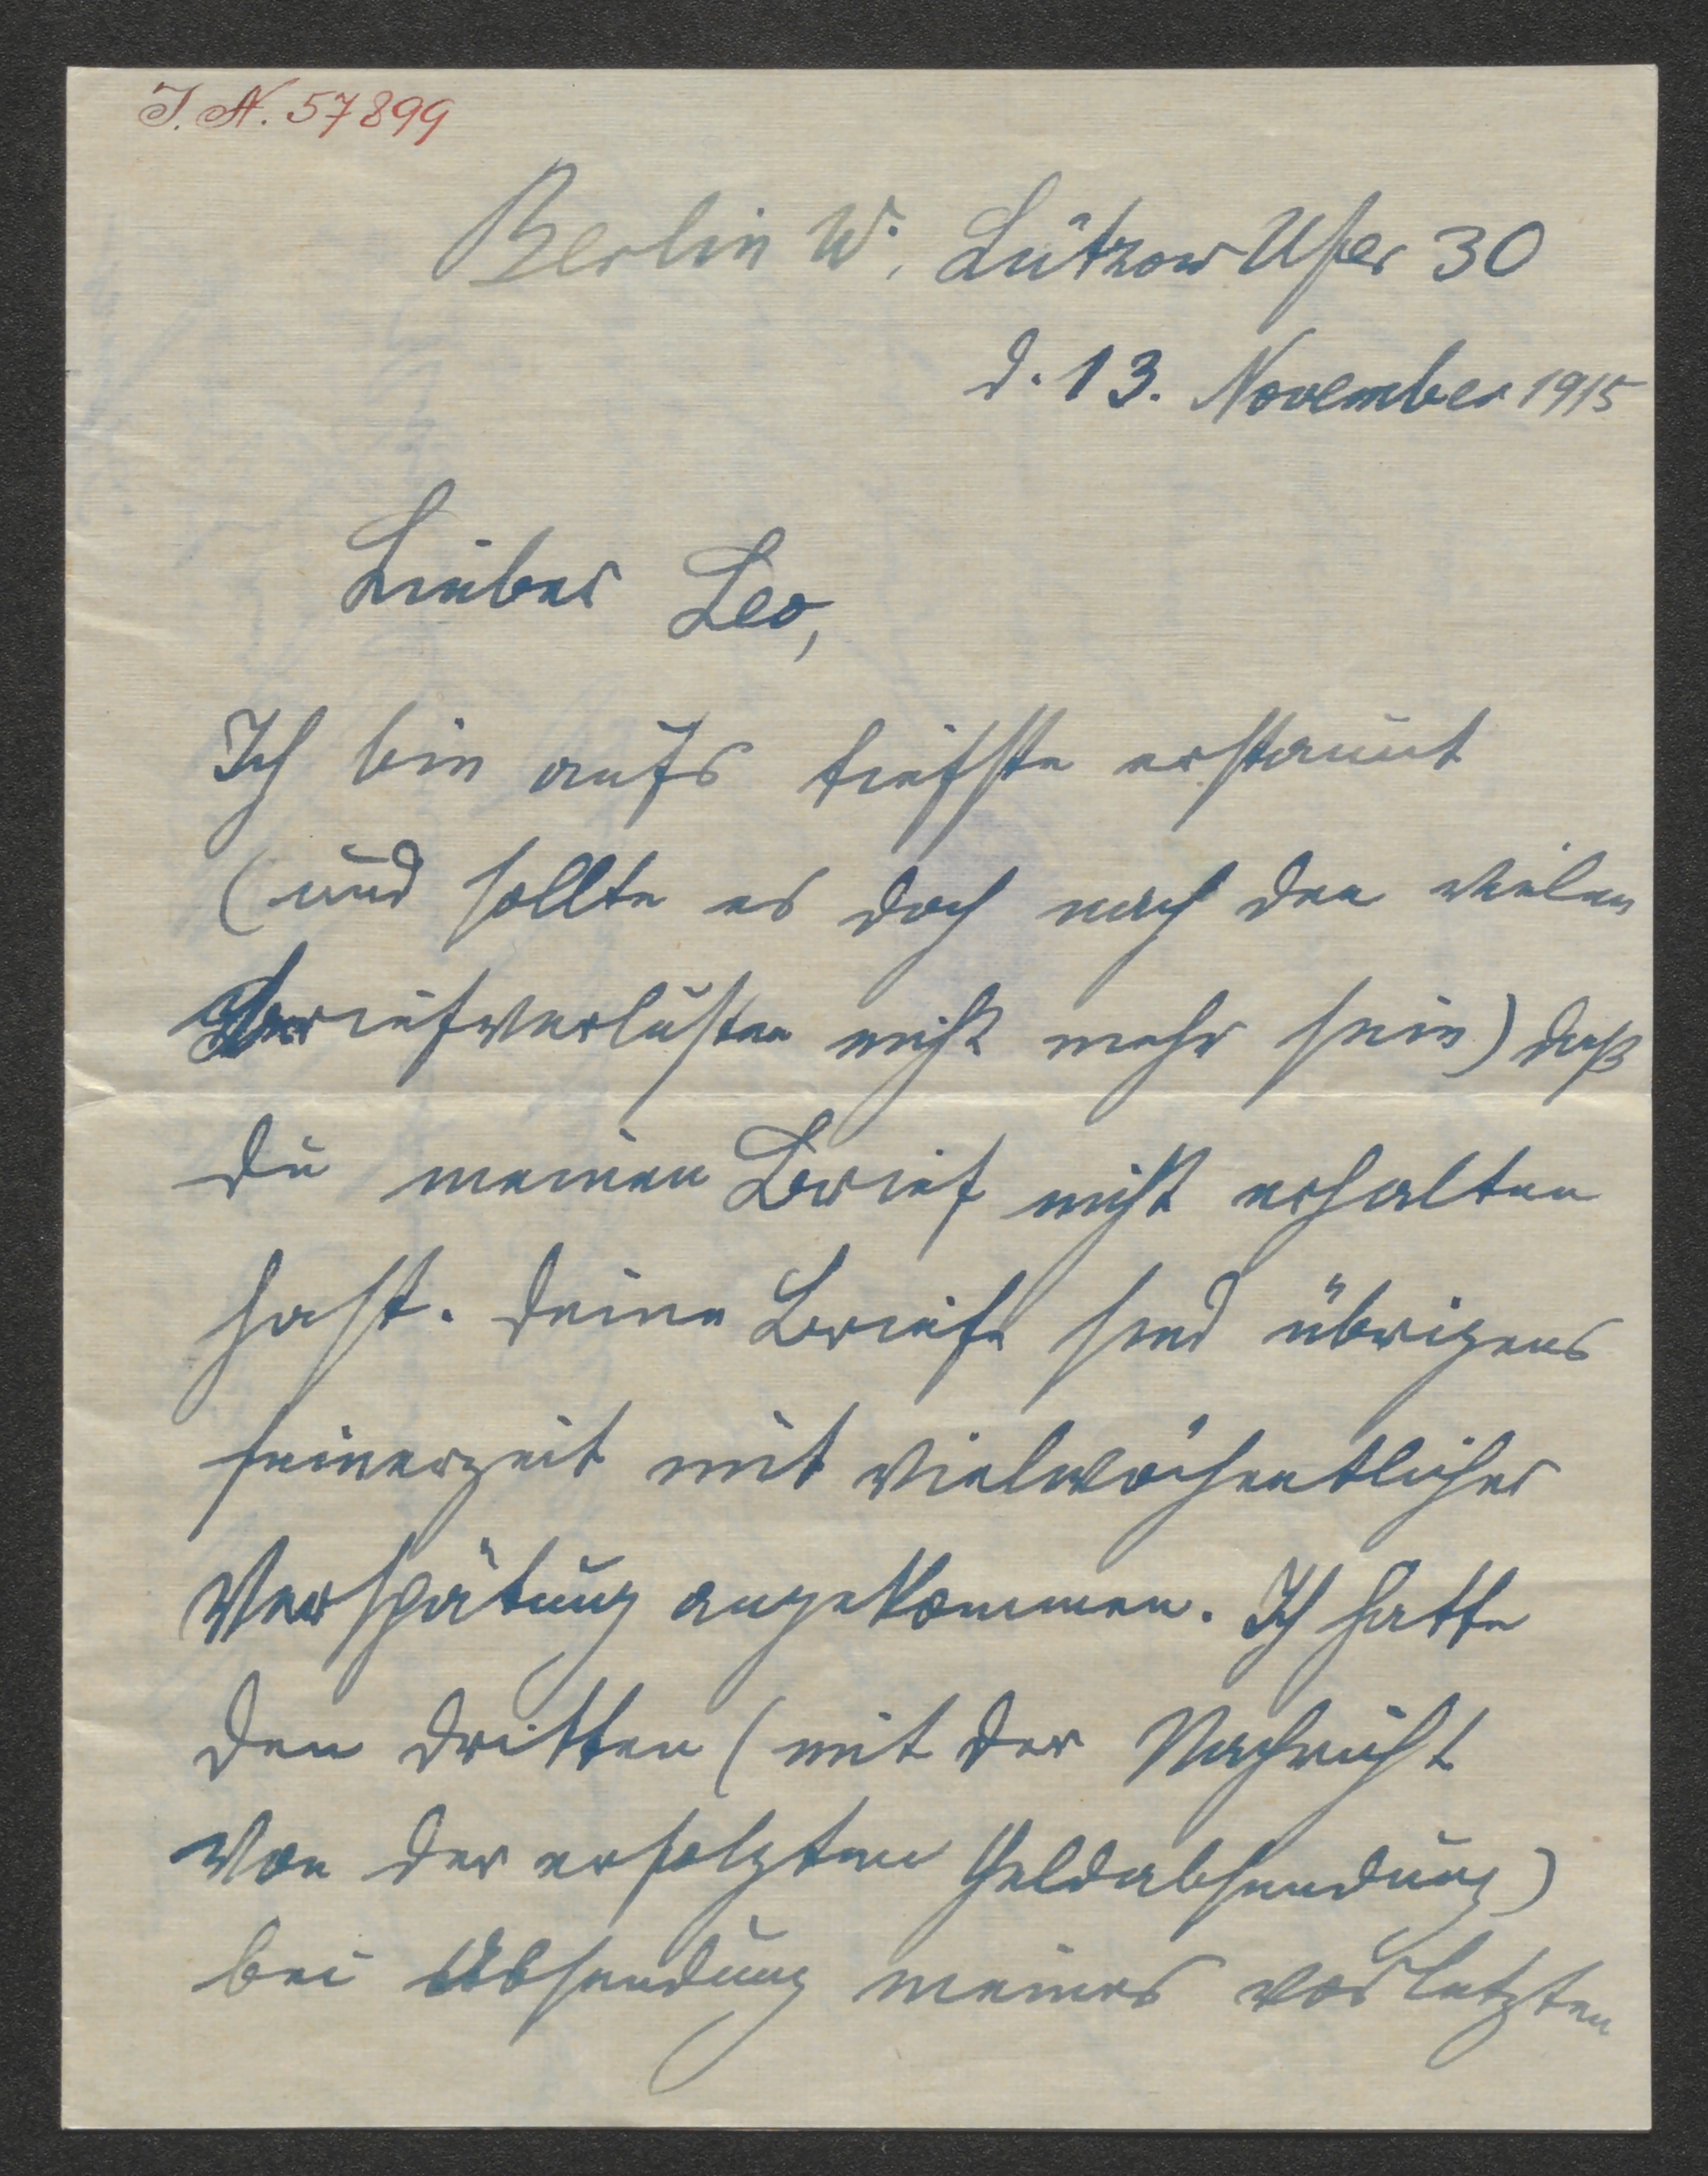 I. N. 57899
Berlin W., Lützow Ufer 30
d. 13. November 1915
Lieber Leo,
Ich bin aufs tiefste erstaunt
(und sollte es doch nach den vielen
Briefverlusten nicht mehr sein) daß
Du meinen Brief nicht erhalten
hast. Deine Briefe sind übrigens
seinerzeit mit vielwöchentlicher
Verspätung angekommen. Ich hatte
den dritten (mit der Nachricht
von der erfolgten Geldabsendung)
bei Absendung meines vorletzten